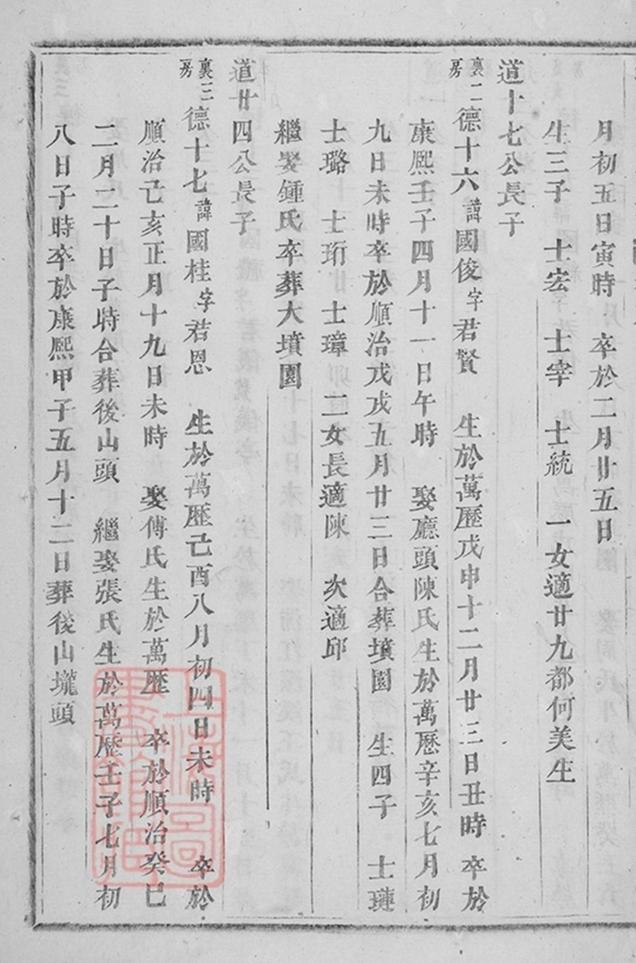 月初五日寅時 卒於二月廿五日
生三子 士宏 士宰 士統 一女適廿九都何美生
道十七公長子
裏二房 德十六 諱國俊 字君賢 生於萬歷戊申十二月廿三日丑時 卒於
康熙壬子四月十一日午時 娶廳頭陳氏生於萬歷辛亥七月初
九日未時卒於順治戊戌五月廿三日合葬墳園 生四子 士璉
士璐 士珩 士璋 二女長適陳 次適邱
繼娶鍾氏卒葬大墳園
道廿四公長子
裏三房 德十七 諱國桂 字君恩 生於萬歷己酉八月初四日未時 卒於
順治己亥正月十九日未時 娶傅氏生於萬歷 卒於順治癸巳
二月二十日子時合葬後山頭 繼娶張氏生於萬歷壬子七月初
八日子時卒於康熙甲子五月十二日葬後山壠頭